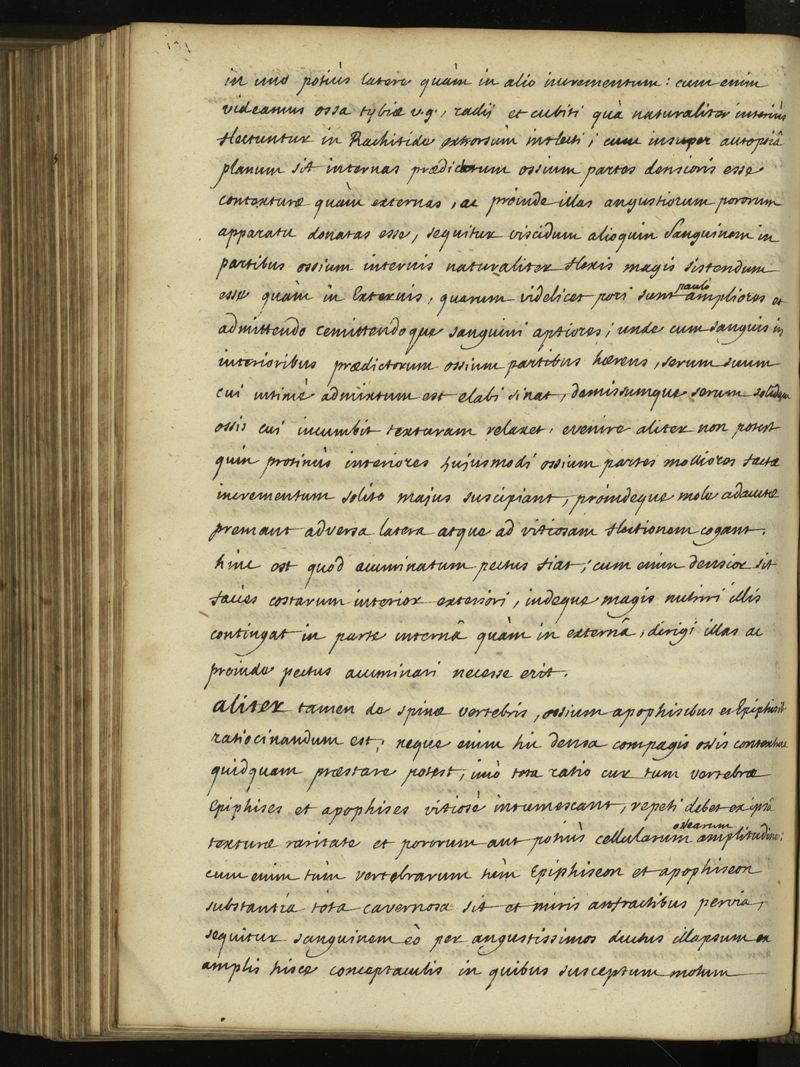 in uno potiùs latere quàm in alio incrementum: cum enim
videamus ossa tybiæ v.g., radij et cubiti quà naturaliter interiùs
flectuntur in Rachitide extrorsùm inflecti; cum insuper autopsiâ
planum sit internas prædictum ossium partes densioris esse
contexturæ quàm externas, ac proinde illas angustiorum pororum
apparatu donatas esse, sequitur viscidum alioquin sanguinem in
partibus ossium internis naturaliter flexis magis sistendum
esse quàm in Externis, quarum videlicet pori sunt paulò ampliores et
admittendo remittendoque sanguini aptiores; unde cum sanguis in
interioribus prædictorum ossium partibus hærens, serum suum
cui intimè admixtum est elabi sinat, demissumque serum solidam
ossis cui incumbit texturam relaxet, evenire aliter non potest
quin protinùs interiores hujusmodi ossium partes molliores factæ
incrementum solito majus suscipiant, proindeque mole adauctæ
premant adversa latera atque ad vitiosam flectionem cogant.
hinc est quòd acuminatum pectus fiat; cum enim densior sit
facies costarum interior exteriori, indeque magis nutriri illis
contingat in parte internâ quàm in externâ, dirigi illas ac
proinde pectus acuminari necesse erit.
aliter tamen de spinæ vertebris, ossium apophisibus et Epiphisib
ratiocinandum est; neque enim hic densa compages ossis contexturæ
quidquam præstare potest, imò tota ratio cur tum vertebræ
Epiphises et apophises vitiosè intumescant, repeti debet ex ipsâ
texturæ raritate et pororum aut potiùs cellularum ossearum amplitudine:
cum enim tùm vertebrarum tùm Epiphiseon et apophiseon
substantia tota cavernosa sit et miris anfractibus pervia,
sequitur sanguinem eò per angustissimos ductus illapsum ex
amplis hisce conceptaculis in quibus susceptum motum